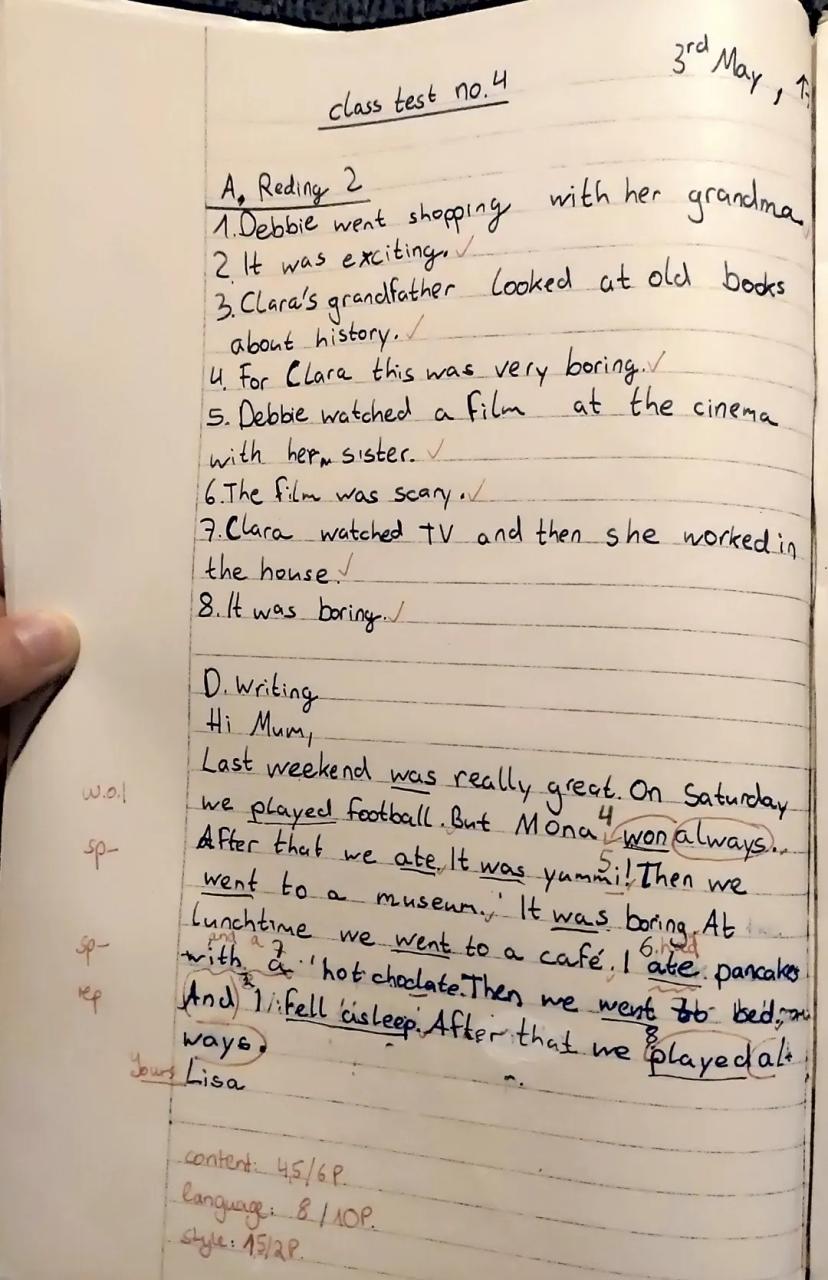 3rd May,
class test no. 4
A, Reding 2
1. Debbie went shopping with her grandma
2. It was exciting. ✓
3. Clara's grandfather looked at old books
about history. ✓
4. For Clara this was very boring. ✓
5. Debbie watched a film at the cinema
with her sister. ✓
6. The film was scary. ✓
7. Clara watched TV and then she worked in
the house. ✓
8. It was boring. ✓
D. Writing
Hi Mum,
Last weekend was really great. On Saturday
w.o.
we played football. But Mona 4 won always.
sp-
After that we ate. It was yummi! Then we
5.
went to a museum. It was boring. At
lunchtime we went to a café. I ate pancakes
and a 7 6. had
sp-
with a hot choclate. Then we went to bed.
rep
And I fell asleep. After that we played al-
8
ways.
Yours
Lisa
content: 4,5/6P.
language: 8/10P.
style: 1,5/2P.